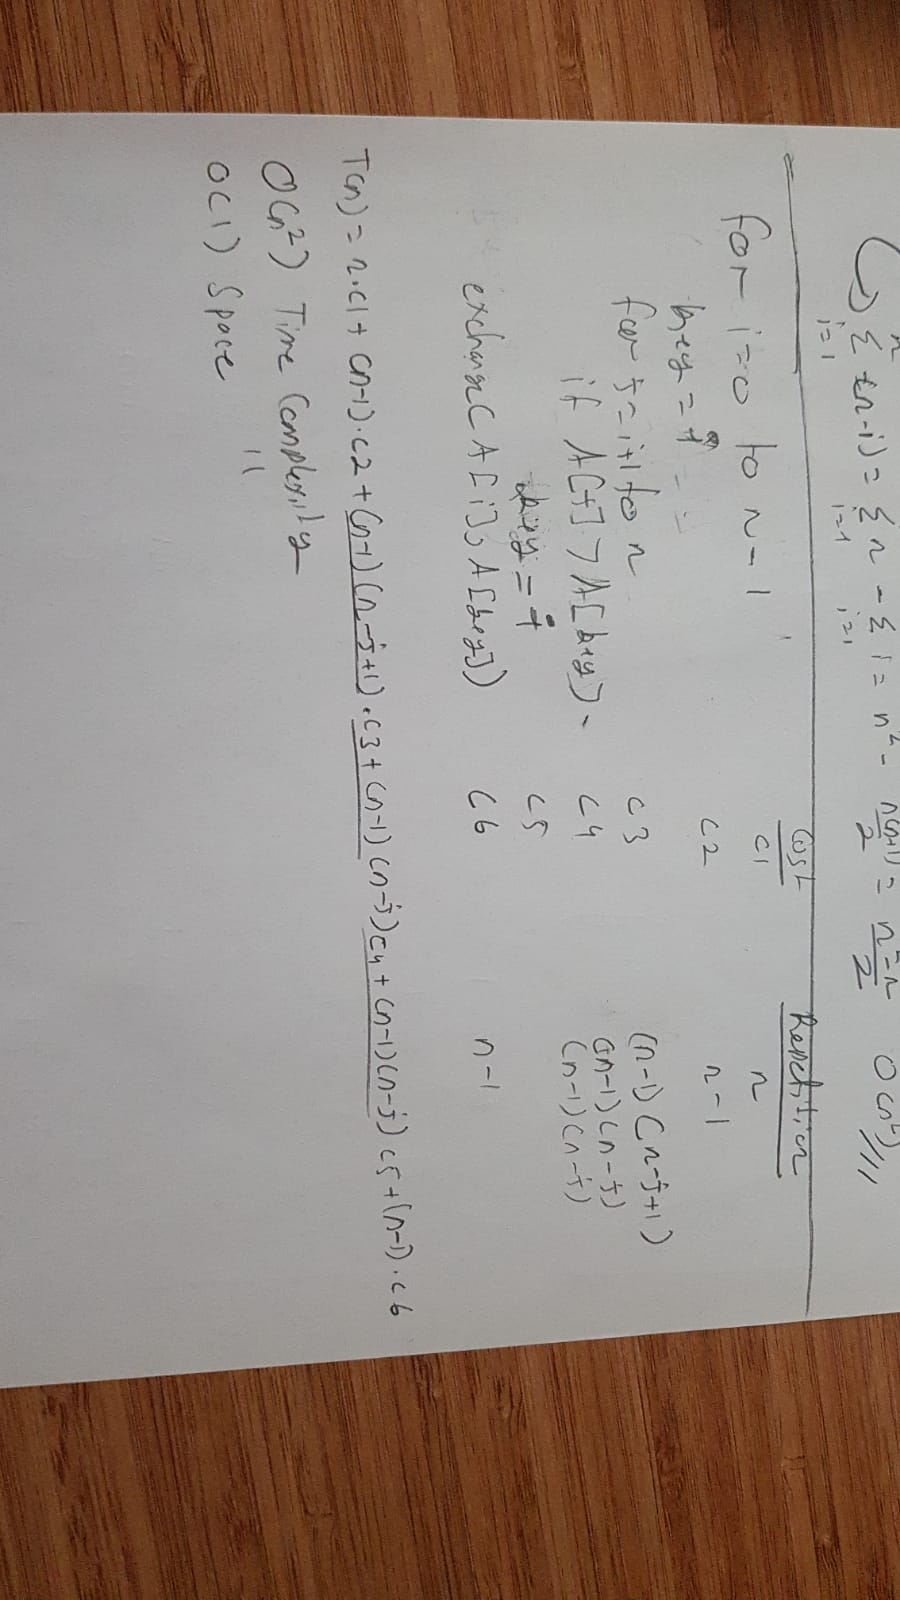 Σ i=1 (n-i) = Σ i=1 n - Σ i=1 i = n² - n(n+1)/2 = n²-n/2 O(n²)///
Cost Repetition
for i=0 to n-1 c1 n
key = i c2 n-1
for j=i+1 to n c3 (n-1)(n-j+1)
if A[j] > A[key] c4 (n-1)(n-j)
(n-1)(n-j)
key = j c5
exchange(A[i], A[key]) c6 n-1
T(n) = n.c1 + (n-1).c2 + (n-1)(n-j+1).c3 + (n-1)(n-j)c4 + (n-1)(n-j)c5 + (n-1).c6
O(n²) Time Complexity
O(1) Space "